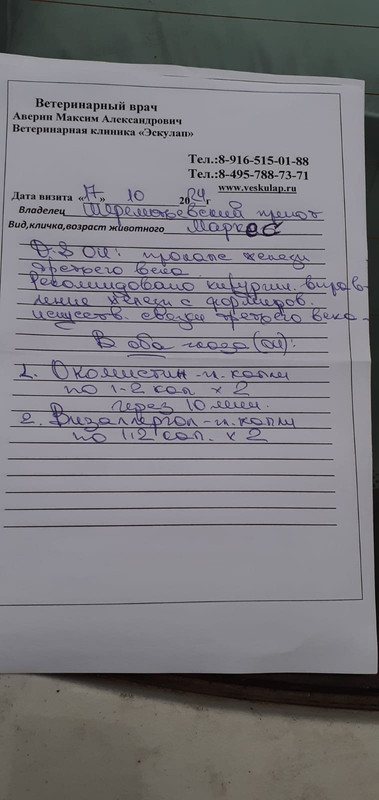 Ветеринарный врач
Аверин Максим Александрович
Ветеринарная клиника «Эскулап»
Тел.:8-916-515-01-88
Тел.:8-495-788-73-71
www.veskulap.ru
Дата визита «17» 10 2024г
Владелец Шереметьевский приют
Вид,кличка,возраст животного Маркес
D.S OU: пролапс железы
третьего века.
Рекомендовано хирургич. вправ-
ление железы с формиров.
искусств. связки третьего века.
В оба глаза (OU):
1. Окомистин - гл. капли
по 1-2 кап × 2
через 10 мин.
2. Визаллергол - гл. капли
по 1-2 кап. × 2